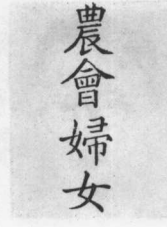 農會婦女